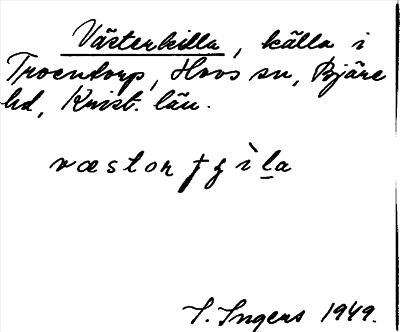 Västerkilla, källa i
Troentorp, Hovs sn, Bjäre
hd, Krist. län.
væstor
I. Ingers 1949.